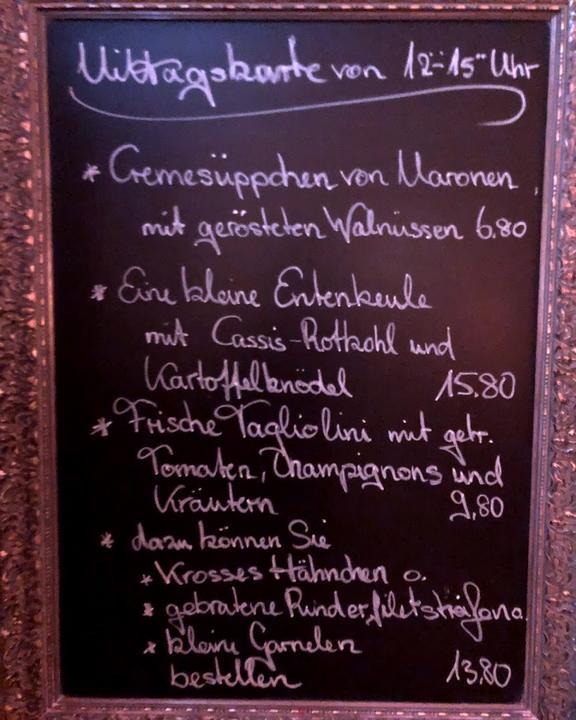 Mittagskarte von 12-15" Uhr
* Cremesüppchen von Maronen
mit gerösteten Walnüssen 6.80
* Eine kleine Entenkeule
mit Cassis-Rotkohl und
Kartoffelknödel 15.80
* Frische Tagliolini mit getr.
Tomaten, Champignons und
Kräutern 9,80
* dazu können Sie
* Krosses Hähnchen o.
* gebratene Rinderfiletstreifen o.
* kleine Garnelen
bestellen 13.80